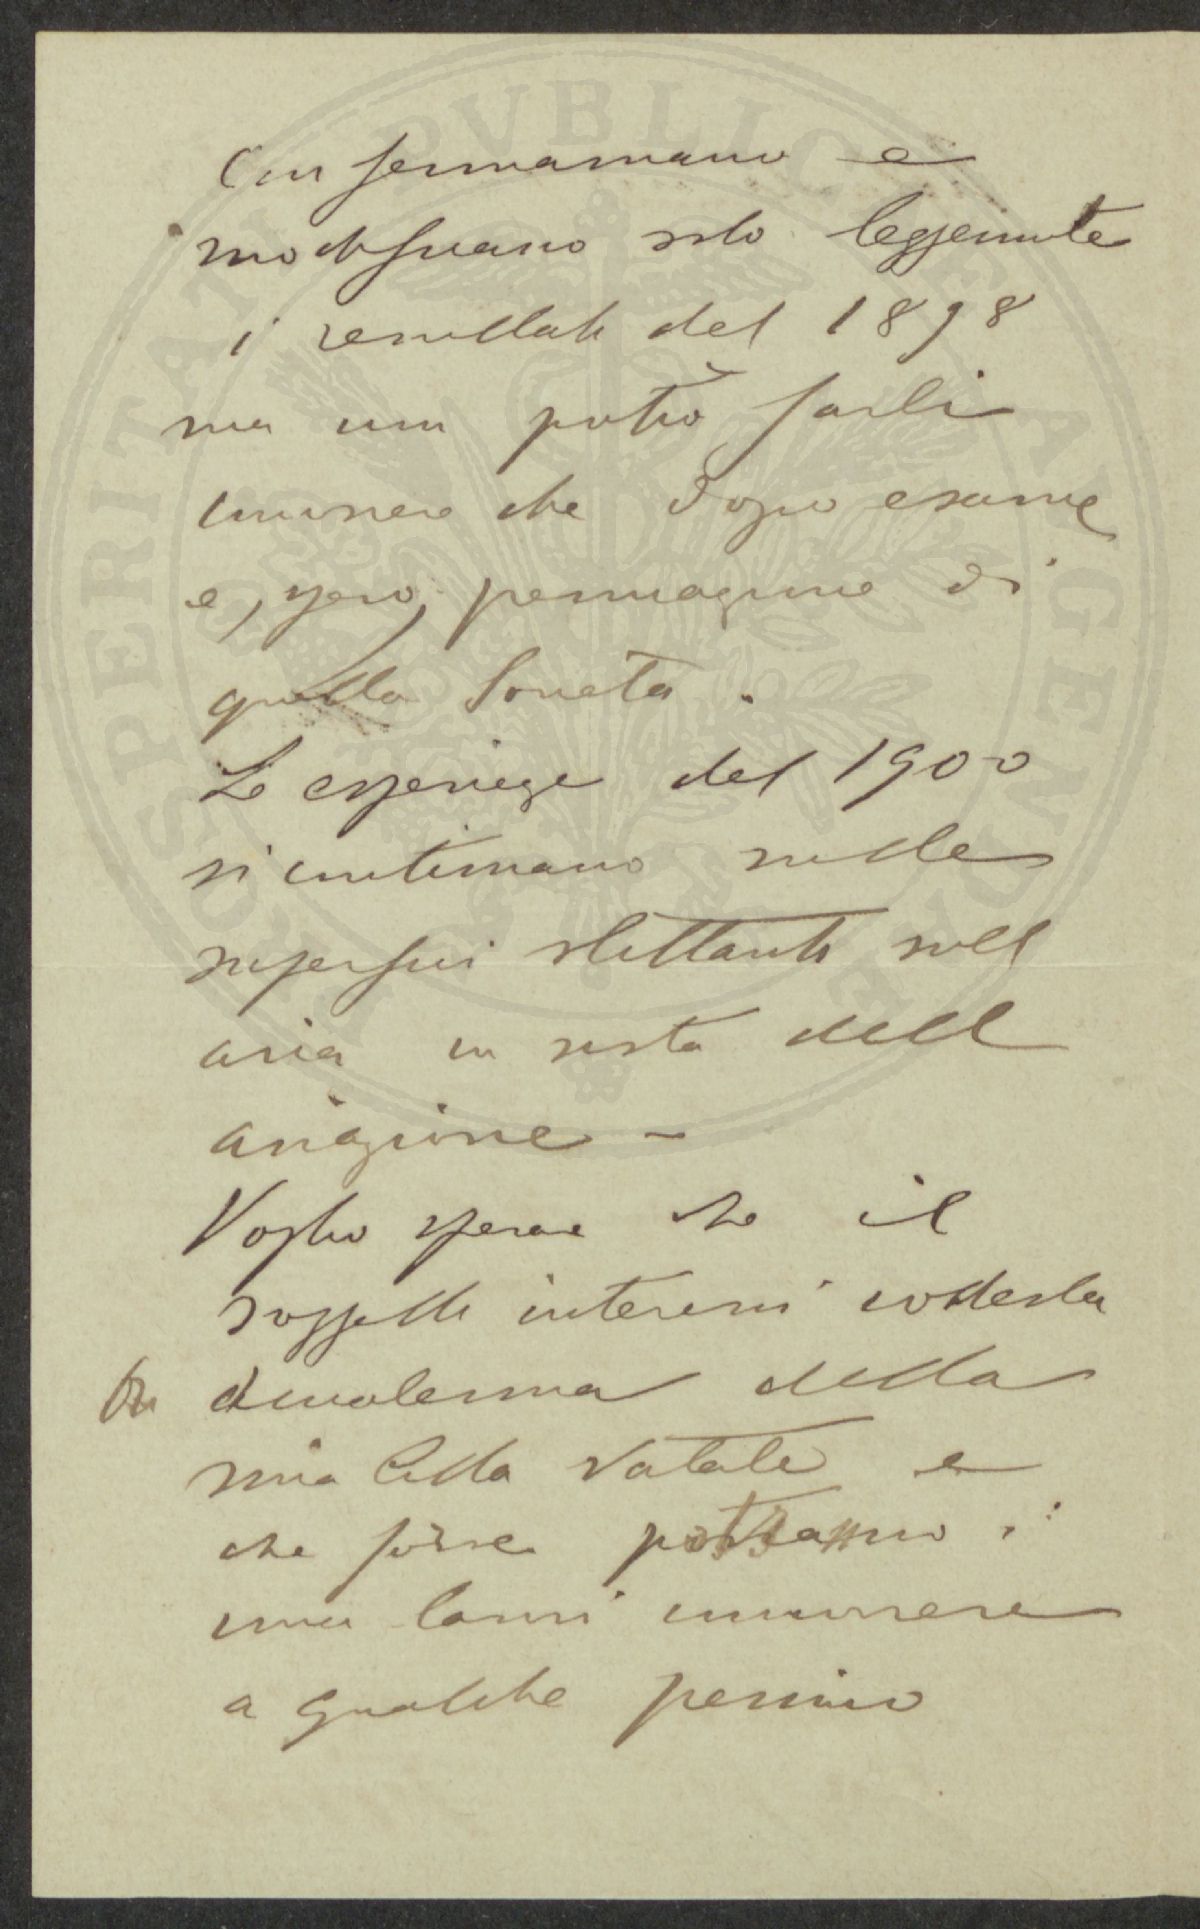 Confermarano e
modificano solo leggermente
i resultati del 1898
ma non potrò farli
conoscere che dopo esame
e, spero, permagine di
quella Società.
Le esperienze del 1900
si continuano sulle
superfici slittanti sull
aria in vista dell
aviazione -
Voglio sperare che il
soggetto interessi codesta
Accademia della
mia Città Natale e
che forse potranno i
miei lavori concorrere
a qualche premio
PROSPERITATI PVBLICAE AVGENDAE